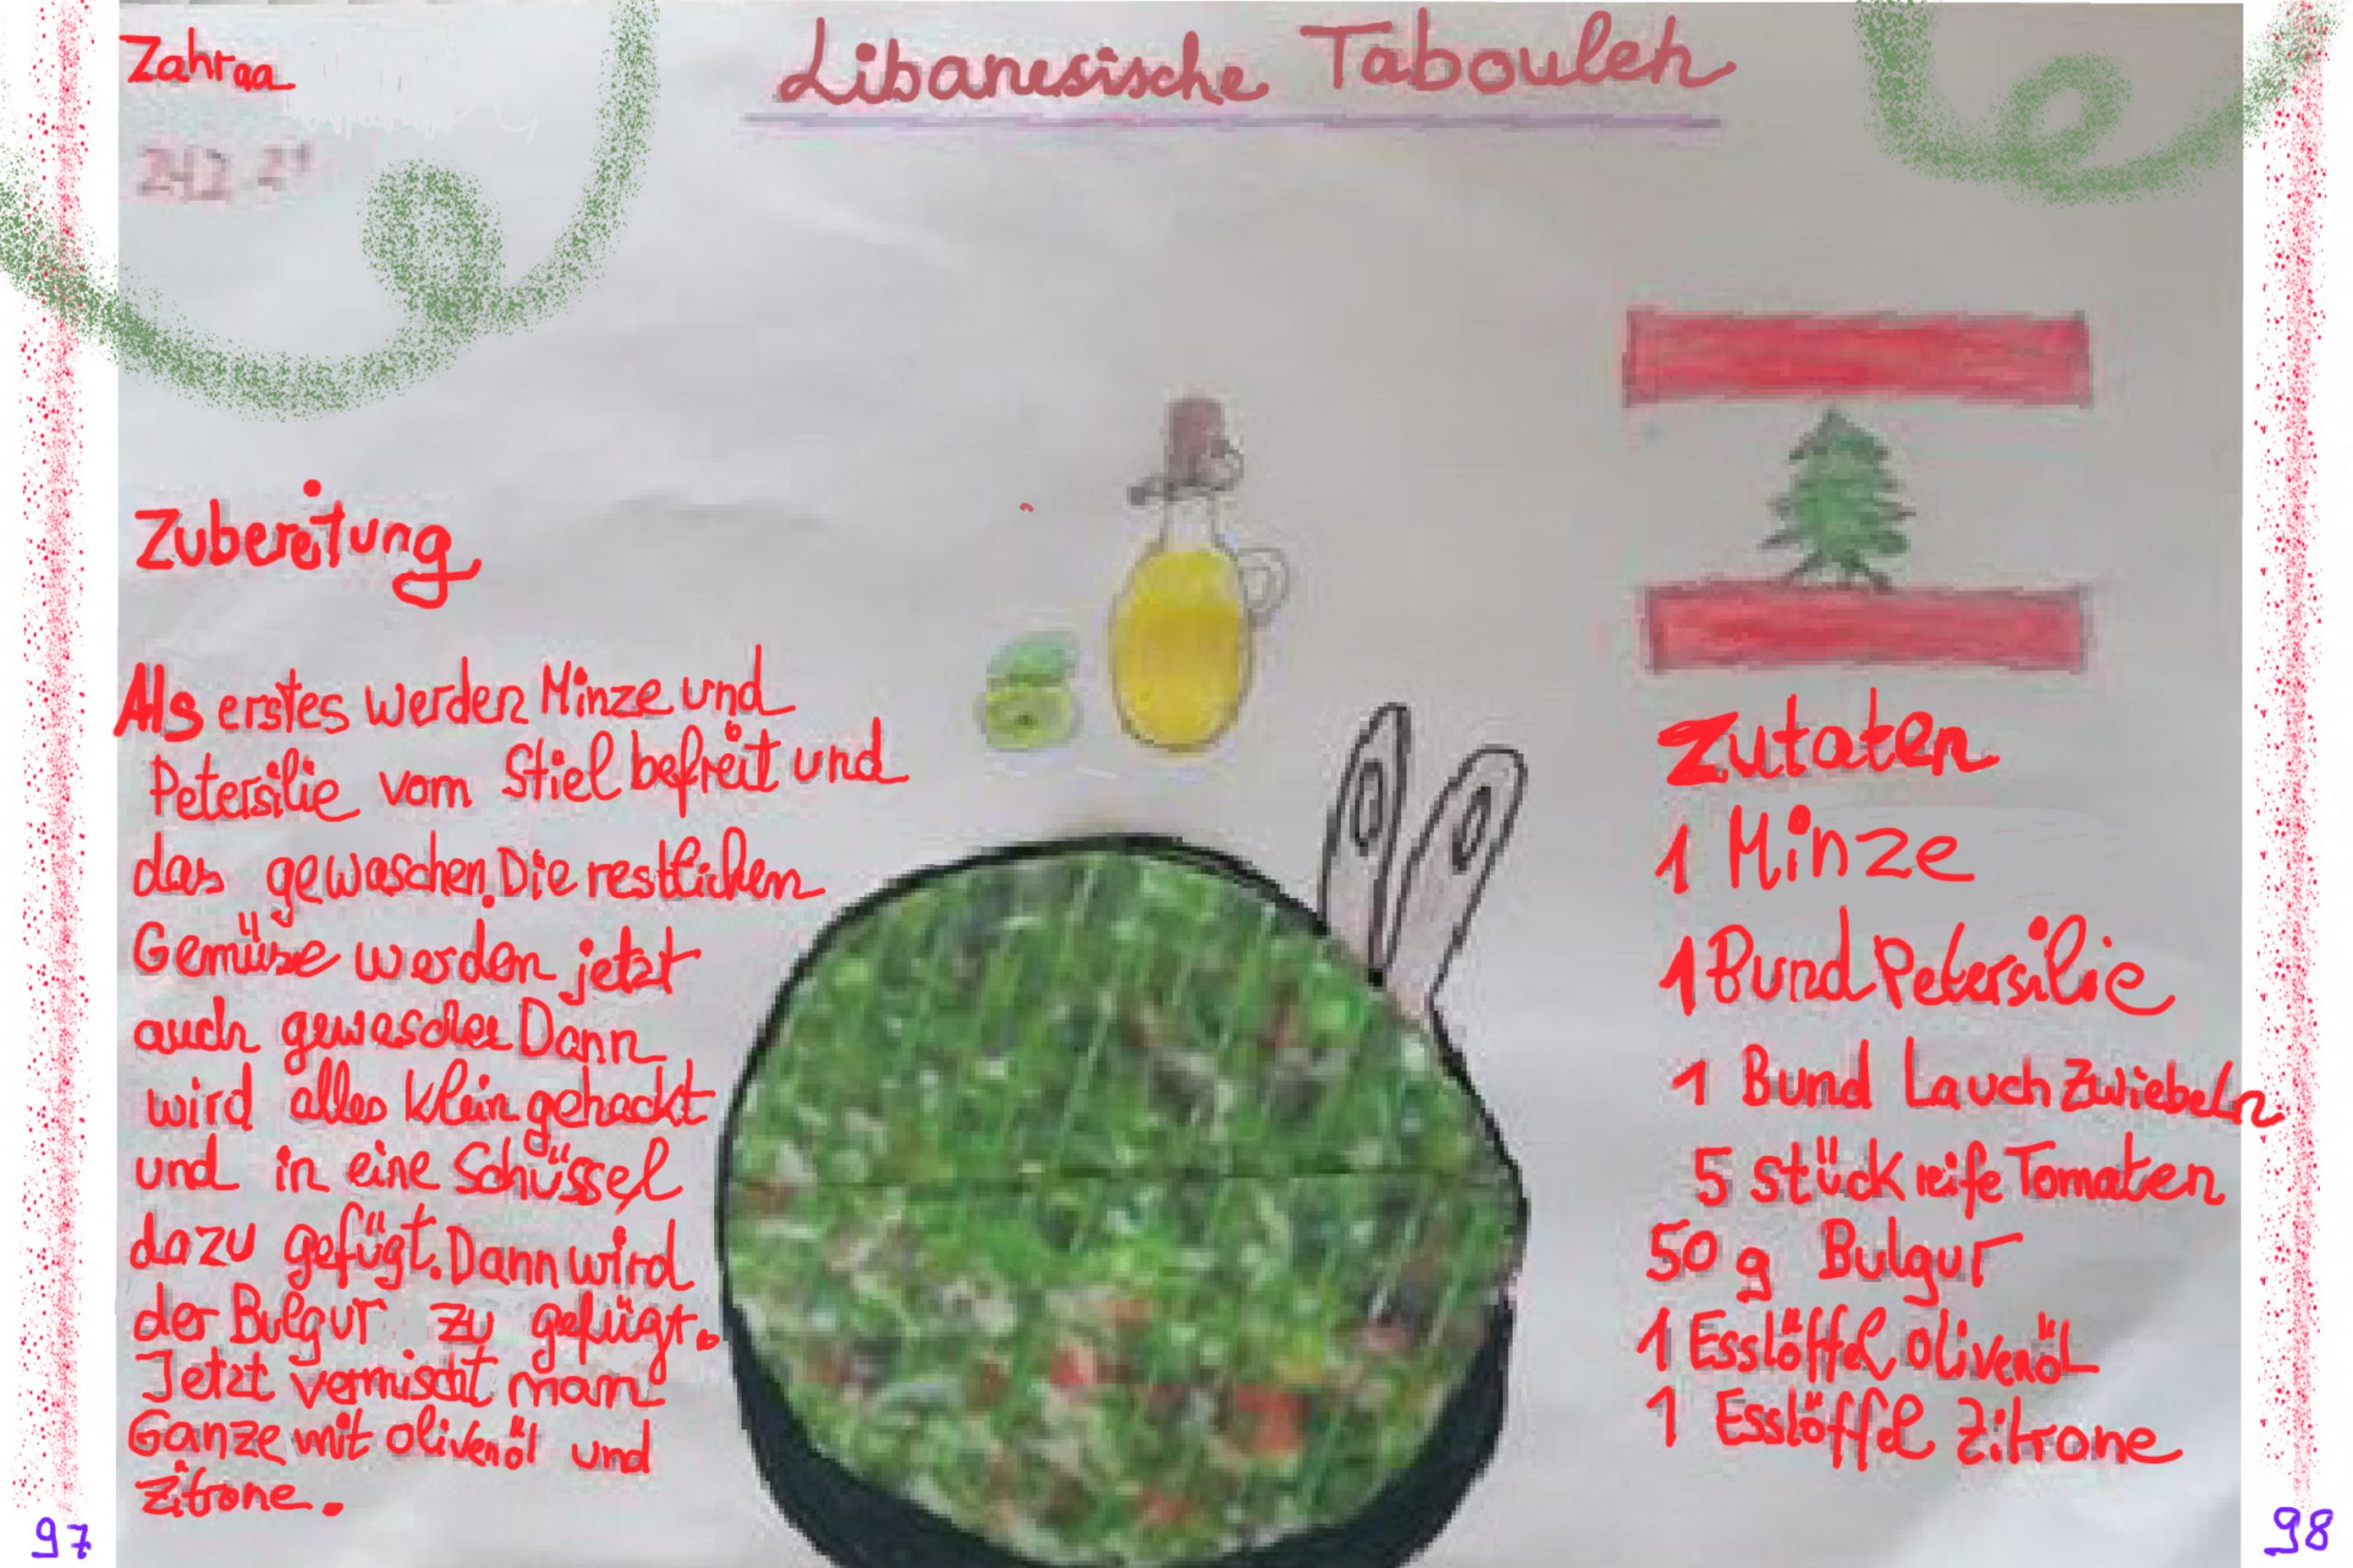 Zahraa
Libanesische Tabouleh
Zubereitung
Als erstes werden Minze und
Petersilie vom Stiel befreit und
das gewaschen. Die restlichen
Gemüse werden jetzt
auch gewaschen Dann
wird alles klein gehackt
und in eine Schüssel
dazu gefügt. Dann wird
der Bulgur zu gefügt.
Jetzt vermischt man
Ganze mit olivenöl und
Zitrone.
97
Zutaten
1 Minze
1 Bund Petersilie
1 Bund Lauch Zwiebeln
5 stück reife Tomaten
50 g Bulgur
1 Esslöffel olivenöl
1 Esslöffel Zitrone
98